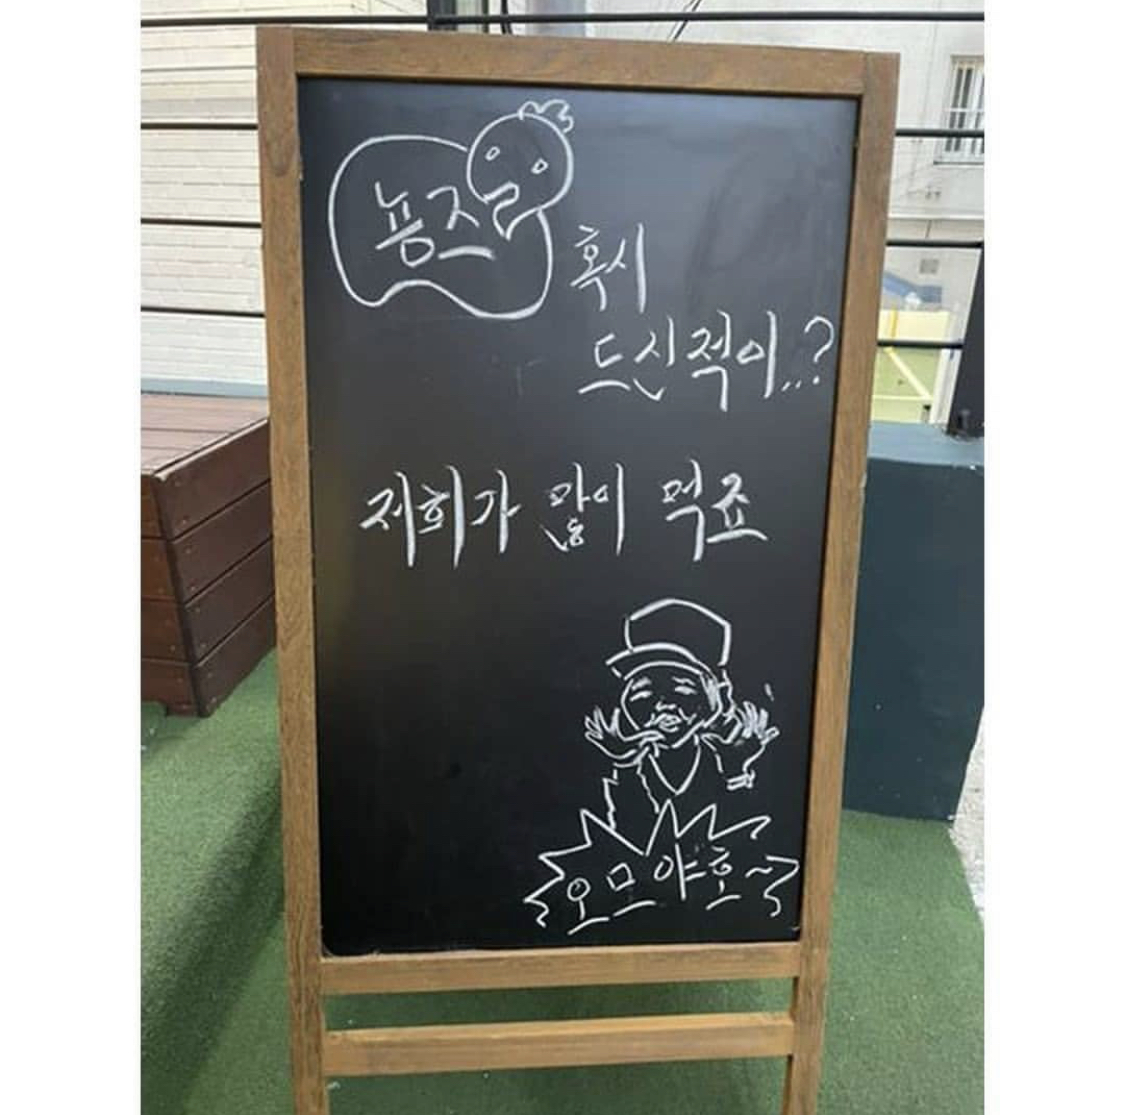 푱즈
혹시
드신적이..?
저희가 많이 먹죠
오모야호~